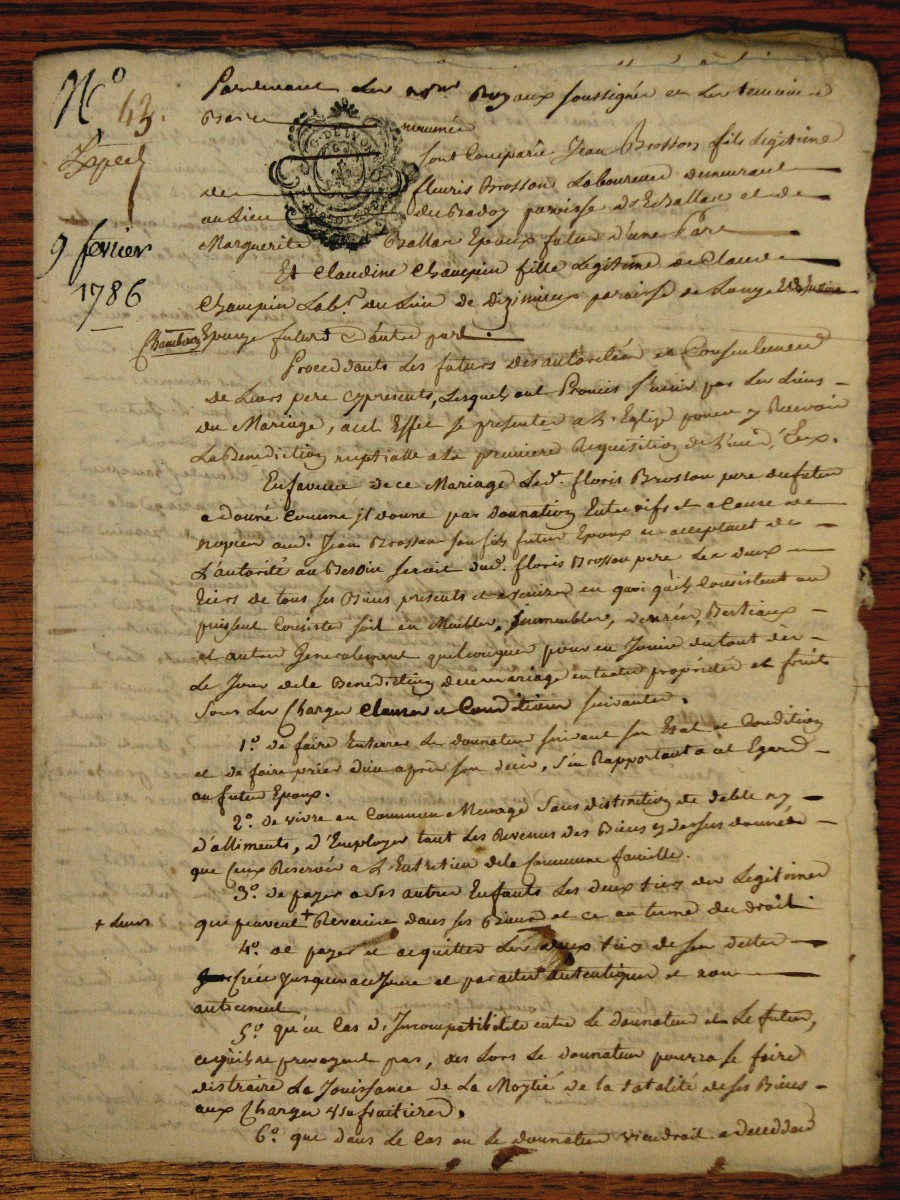 N° 43.
Exped
9 février
1786
Pardevant les nores Royaux soussignés et les temoins
Bas nommés
sont Comparûs Jean Brosson fils Legitime
de fleuris Brosson Laboureur demeurant
au Lieu du Badoy paroisse d'
Marguerite Ballas Epoux futur d'une Part
Et Claudine Champin fille Legitime de Claude
Champin Labr. du Lieu de dizimieux paroisse de Longes
Epouze future d'autre part.
Procedants Les futurs des autorités et Consentement
de Leurs pere cy presents, Lesquels ont Promis s'unir par Les Liens
du Mariage, a cet Effet se presenter a L'Eglise pour y Recevoir
La Benediction nuptialle a la premiere Requisition de L'un d'Eux.
En faveur de ce Mariage Led. floris Brosson pere du futur
a donné comme il donne par donnation Entrevifs et a cause de
nopces aud. Jean Brosson son fils futur Epoux ce acceptant de
L'autorité au Besoin seroit dud. floris Brosson pere Les deux
tiers de tous ses Biens presents et a venir en quoi qu'ils Consistent ou
puissent Consister soit en Meubles, Immeubles, denrées, Bestiaux
et autres Generalement quelconques pour en Jouir du tout dès
Le Jour de la Benediction du mariage en toutes propriétés et fruits
sous Les Charges Clauses et Conditions suivantes.
1°. de faire Enterrer Le donnateur suivant son Etat et Condition
et de faire prier dieu après son decès, s'en Rapportant a cet Egard
au futur Epoux.
2°. de vivre en Commun Menage sans distinction de table ny
d'alliments, d'Employer tant Les Revenus des Biens cy dessus donnés
que Ceux Reservés a L'Entretien de la Commune famille.
3°. de payer a ses autres Enfants Les deux tiers des Legitimes
+ Leurs
qui peuvent + Revenir dans ses Biens et ce au terme du droit.
4°. de payer et acquitter Les deux tiers de ses dettes
Créés Jusqu'a ce Jour et par actes autentiques et non
autrement
5°. qu'en Cas d'Incompatibilité entre Le donnateur et Le futur,
ce qu'ils ne prevoyent pas, des Lors Le donnateur pourra se faire
distraire La Jouissance de La Moytié de la totalité de ses Biens
aux Charges usufruitieres.
6°. que dans Le Cas ou Le donnateur viendroit a decedder